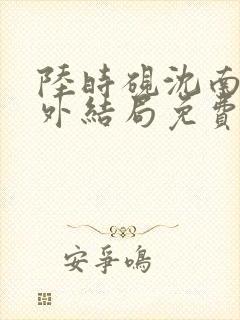 陸時硯沈南
外結局免費
安爭鳴